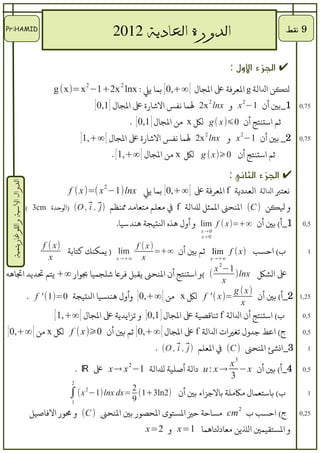 Pr:HAMID
الدورة العادية 2012
9 نقط
✔ الجزء الأول :
لتكن الدالة g المعرفة على المجال ]0,+∞[ بما يلي : g(x)=x²−1+2x² lnx
1_ بين أن x²−1 و 2x² lnx لهما نفس الاشارة على المجال ]0,1]
0,75
ثم استنتج أن g(x)⩽0 لكل x من المجال ]0,1] .
2_ بين أن x²−1 و 2x² lnx لهما نفس الاشارة على المجال [1,+∞[
0,75
ثم استنتج أن g(x)⩾0 لكل x من المجال [1,+∞[ .
✔ الجزء الثاني :
الدوال الأسية واللوغاريتمية
نعتبر الدالة العددية f المعرفة على ]0,+∞[ بما يلي f(x)=(x²−1)lnx
و ليكن (C) المنحنى الممثل للدالة f في معلم متعامد ممنظم (O, i, j) (الوحدة 3cm
1_أ) بين أن lim f(x)=+∞ x→0 x>0 و أول هذه النتيجة هندسيا.
0,5
ب) احسب lim f(x) x→+∞ ثم بين أن lim f(x)/x =+∞ x→+∞ ( يمكنك كتابة f(x)/x
1
على الشكل ((x²−1)/x) lnx )و استنتج أن المنحنى يقبل فرعا شلجميا بجوار +∞ يتم تحديد اتجاهه
2_أ) بين أن f '(x)=g(x)/x لكل x من ]0,+∞[ وأول هندسيا النتيجة f '(1)=0 .
1,25
ب) استنتج أن الدالة f تناقصية على المجال ]0,1] و تزايدية على المجال [1,+∞[
0,5
ج) اعط جدول تغيرات الدالة f على المجال ]0,+∞[ ثم بين أن f(x)⩾0 لكل x من ]0,+∞[
0,5
3_انشئ المنحنى (C) في المعلم (O, i, j) .
1
4_أ) بين أن u:x→x³/3 −x دالة أصلية للدالة x→x²−1 على ℝ .
0,5
ب) باستعمال مكاملة بالاجزاء بين أن ∫₁² (x²−1)lnx dx= 2/9 (1+3ln2)
1
ج) احسب ب cm² مساحة حيز المستوى المحصور بين المنحنى (C) و محور الافاصيل
0,25
و المستقيمين اللذين معادلتاهما x=1 و x=2